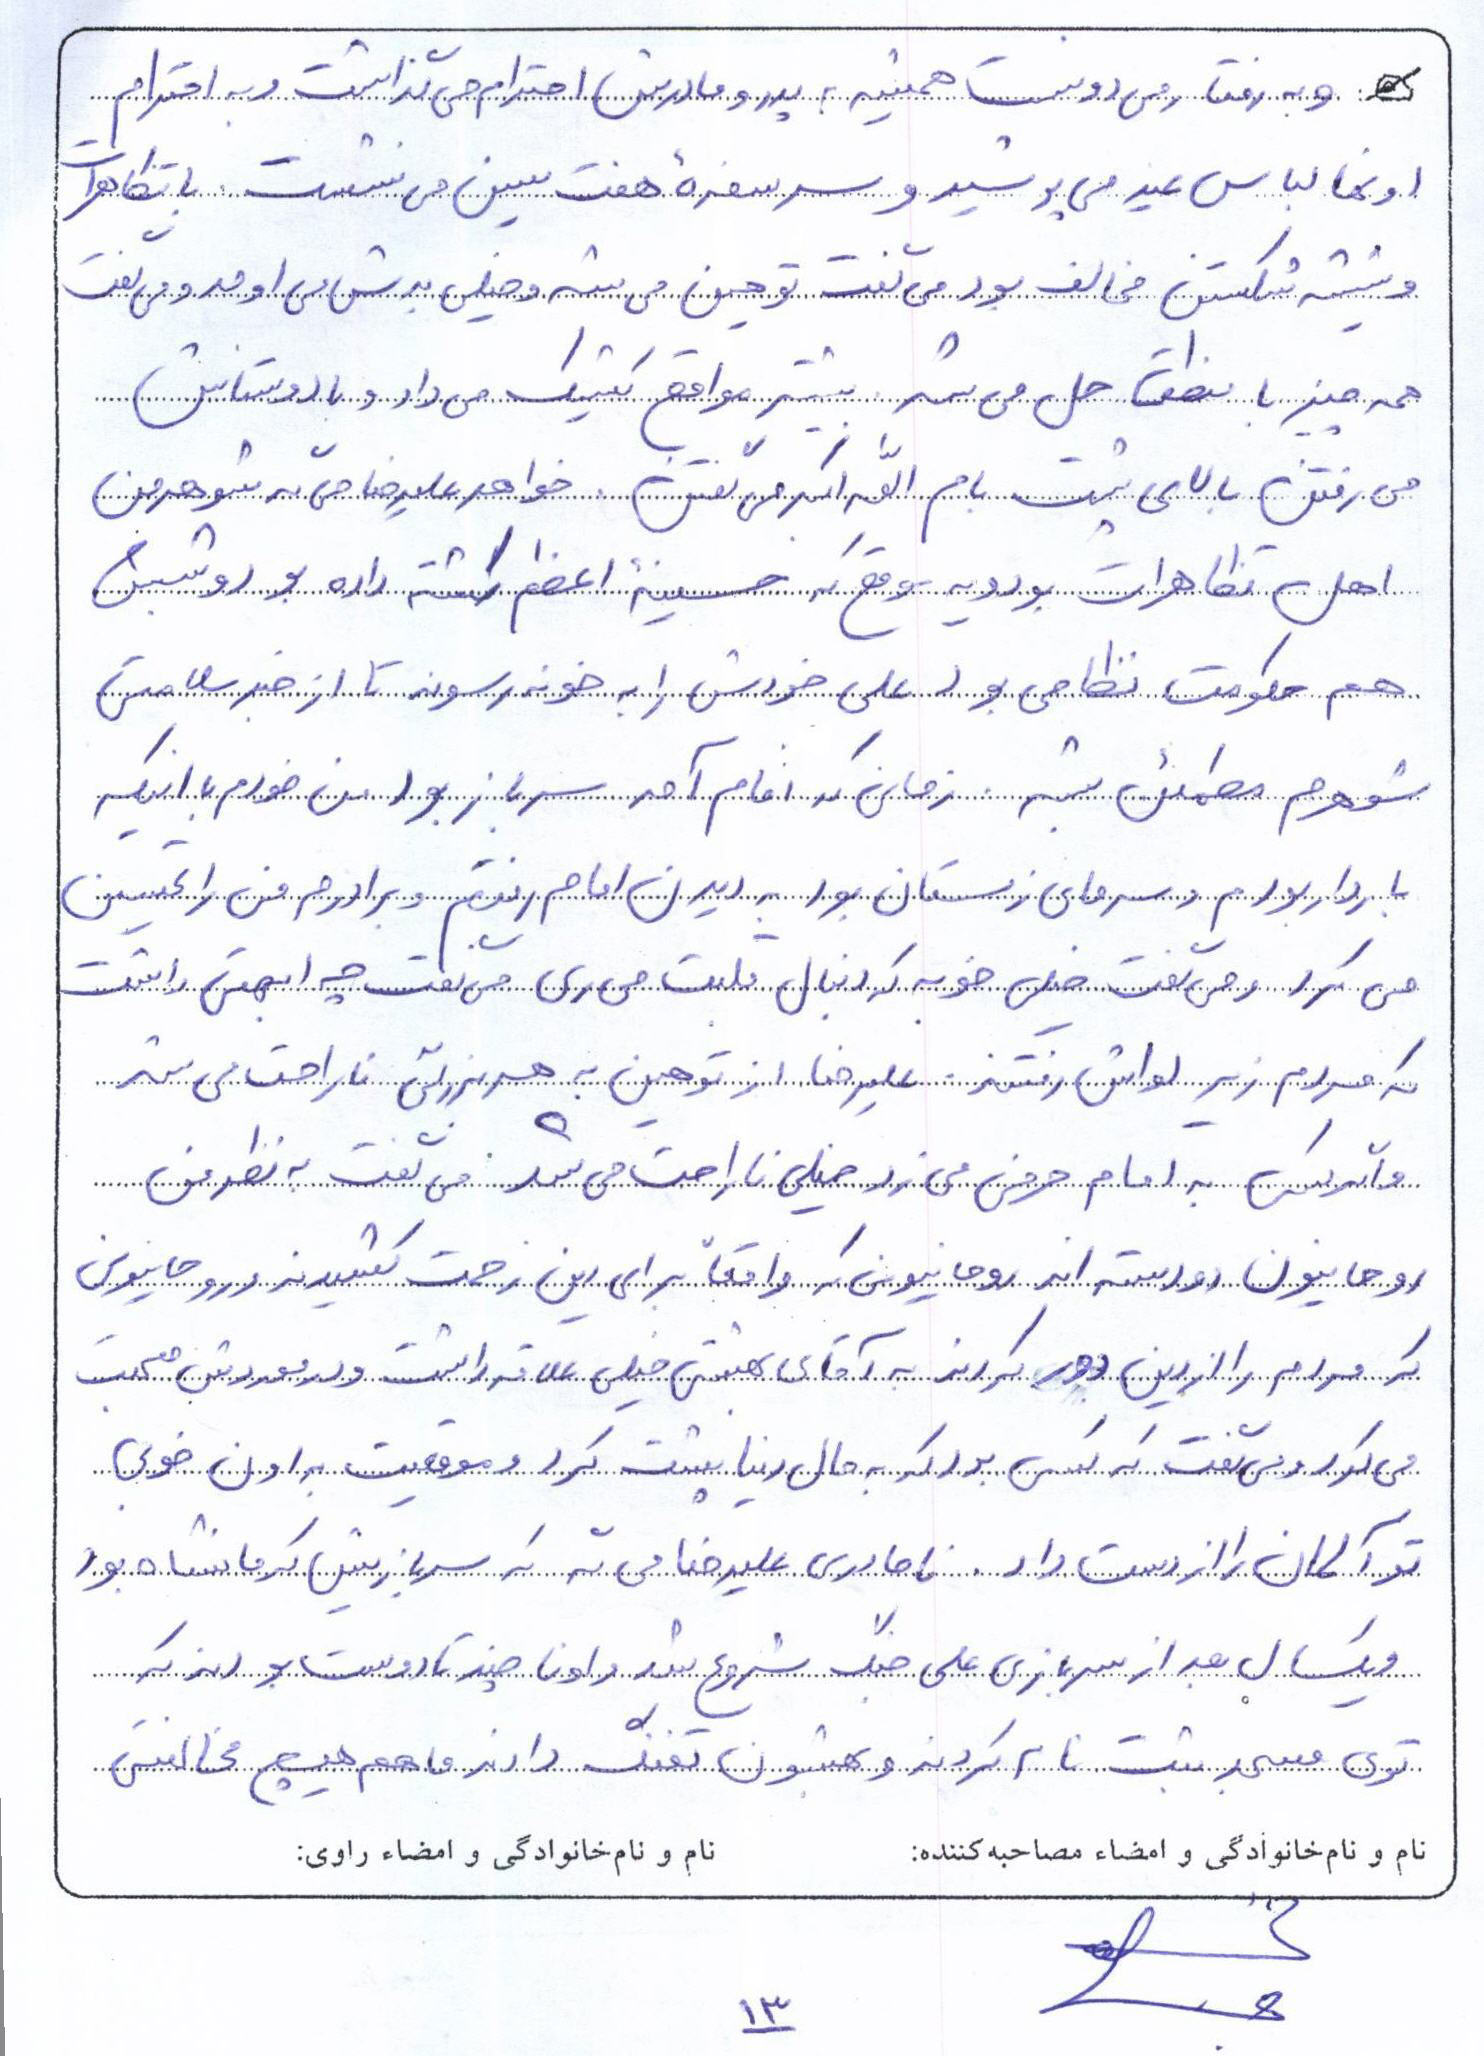 و به رفتار می دونست همیشه به پدر و مادرش احترام می گذاشت و به احترام
اونها لباس عید می پوشید و سر سفرهٔ هفت سین می نشست. با تظاهرات
و شیشه شکستن مخالف بود می گفت توهین می شه و خیلی بدش می اومد و می گفت
همه چیز با منطق حل می شد. بیشتر مواقع کشیک می داد و با دوستاش
می رفتن بالای پشت بام الله اکبر می گفتن. خواهر علیرضا می گه شوهر من
اهل تظاهرات بود و یه موقع که حسینیهٔ اعظم کشته داده بود و شبش
هم حکومت نظامی بود علی خودش را به خونه رسونه تا از خبر سلامتی
شوهرم مطمئن بشه. زمانی که امام آمد سرباز بود من خودم با اینکه
باردار بودم و سرمای زمستان بود به دیدن امام رفتم و برادرم من را تحسین
می کرد و می گفت خیلی خوبه که دنبال قلبت می ری می گفت چه ابهتی داشت
که مردم زیر لواش رفتند. علیرضا از توهین به هر بزرگی ناراحت می شد
و اگر کسی به امام حرفی می زد خیلی ناراحت می شد. می گفت به نظر من
روحانیون دو دسته اند روحانیونی که واقعاً برای دین زحمت کشیدند و روحانیونی
که مردم را از دین دور کردند به آقای بهشتی خیلی علاقه داشت و در موردش صحبت
می کرد و می گفت که کسی بود که به مال دنیا پشت کرد و موقعیت به اون خوبی
تو آلمان را از دست داد. نامادری علیرضا می گه که سربازیش کرمانشاه بود
و یکسال بعد از سربازی علی جنگ شروع شد و اونا چند تا دوست بودند که
توی مسجد ثبت نام کردند و بهشون تفنگ دادند ما هم هیچ مخالفتی
نام و نام‌خانوادگی و امضاء مصاحبه‌کننده: نام و نام‌خانوادگی و امضاء راوی:
۱۳